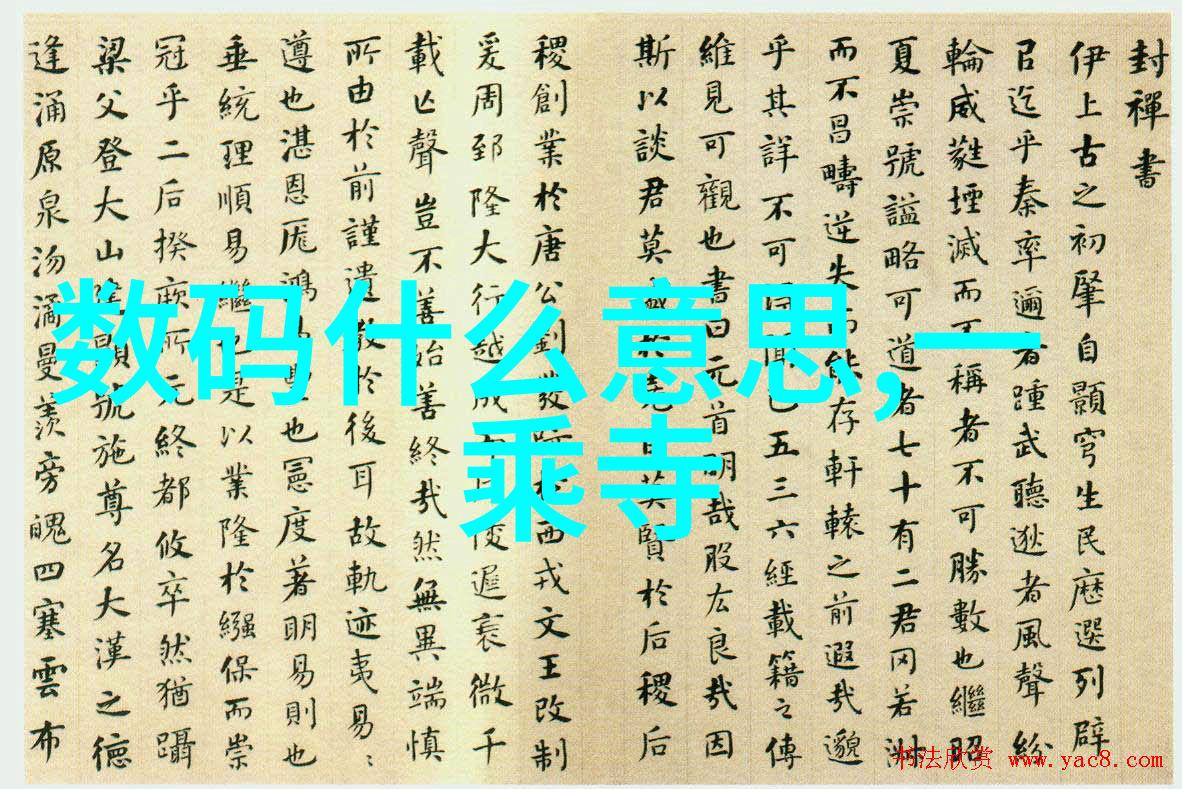 封禪書
伊上古之初肇自顥穹生民歷選列辟
㠯迄乎秦率邇者踵武聽逖者風聲紛
輪威蕤堙滅而不稱者不可勝數也繼昭
夏崇號謚略可道者七十有二君罔若淑
而不昌疇逆失而能存軒轅之前遐哉邈
乎其詳不可得聞已五三六經載籍之傳
維見可觀也書曰元首明哉股厷良哉因
斯以談君莫於臣莫賢於后稷后
稷創業於唐公劉發於西戎文王改制
爰周郅隆大行越成而陵遲衰微千
載亡聲豈不善始善終哉然無異端慎
所由於前謹遺教於後耳故軌迹夷易〻
遵也湛恩厖鴻也憲度著明易則也
垂統理順易繼也是以業隆於繈保而崇
冠乎二后揆厥所元終都攸卒然猶躡
梁父登大山顯號施尊名大漢之德
逢涌原泉沕潏曼羨旁魄四塞雲布
数码什么意思,一
乘寺
书法欣赏 www.yac8.com